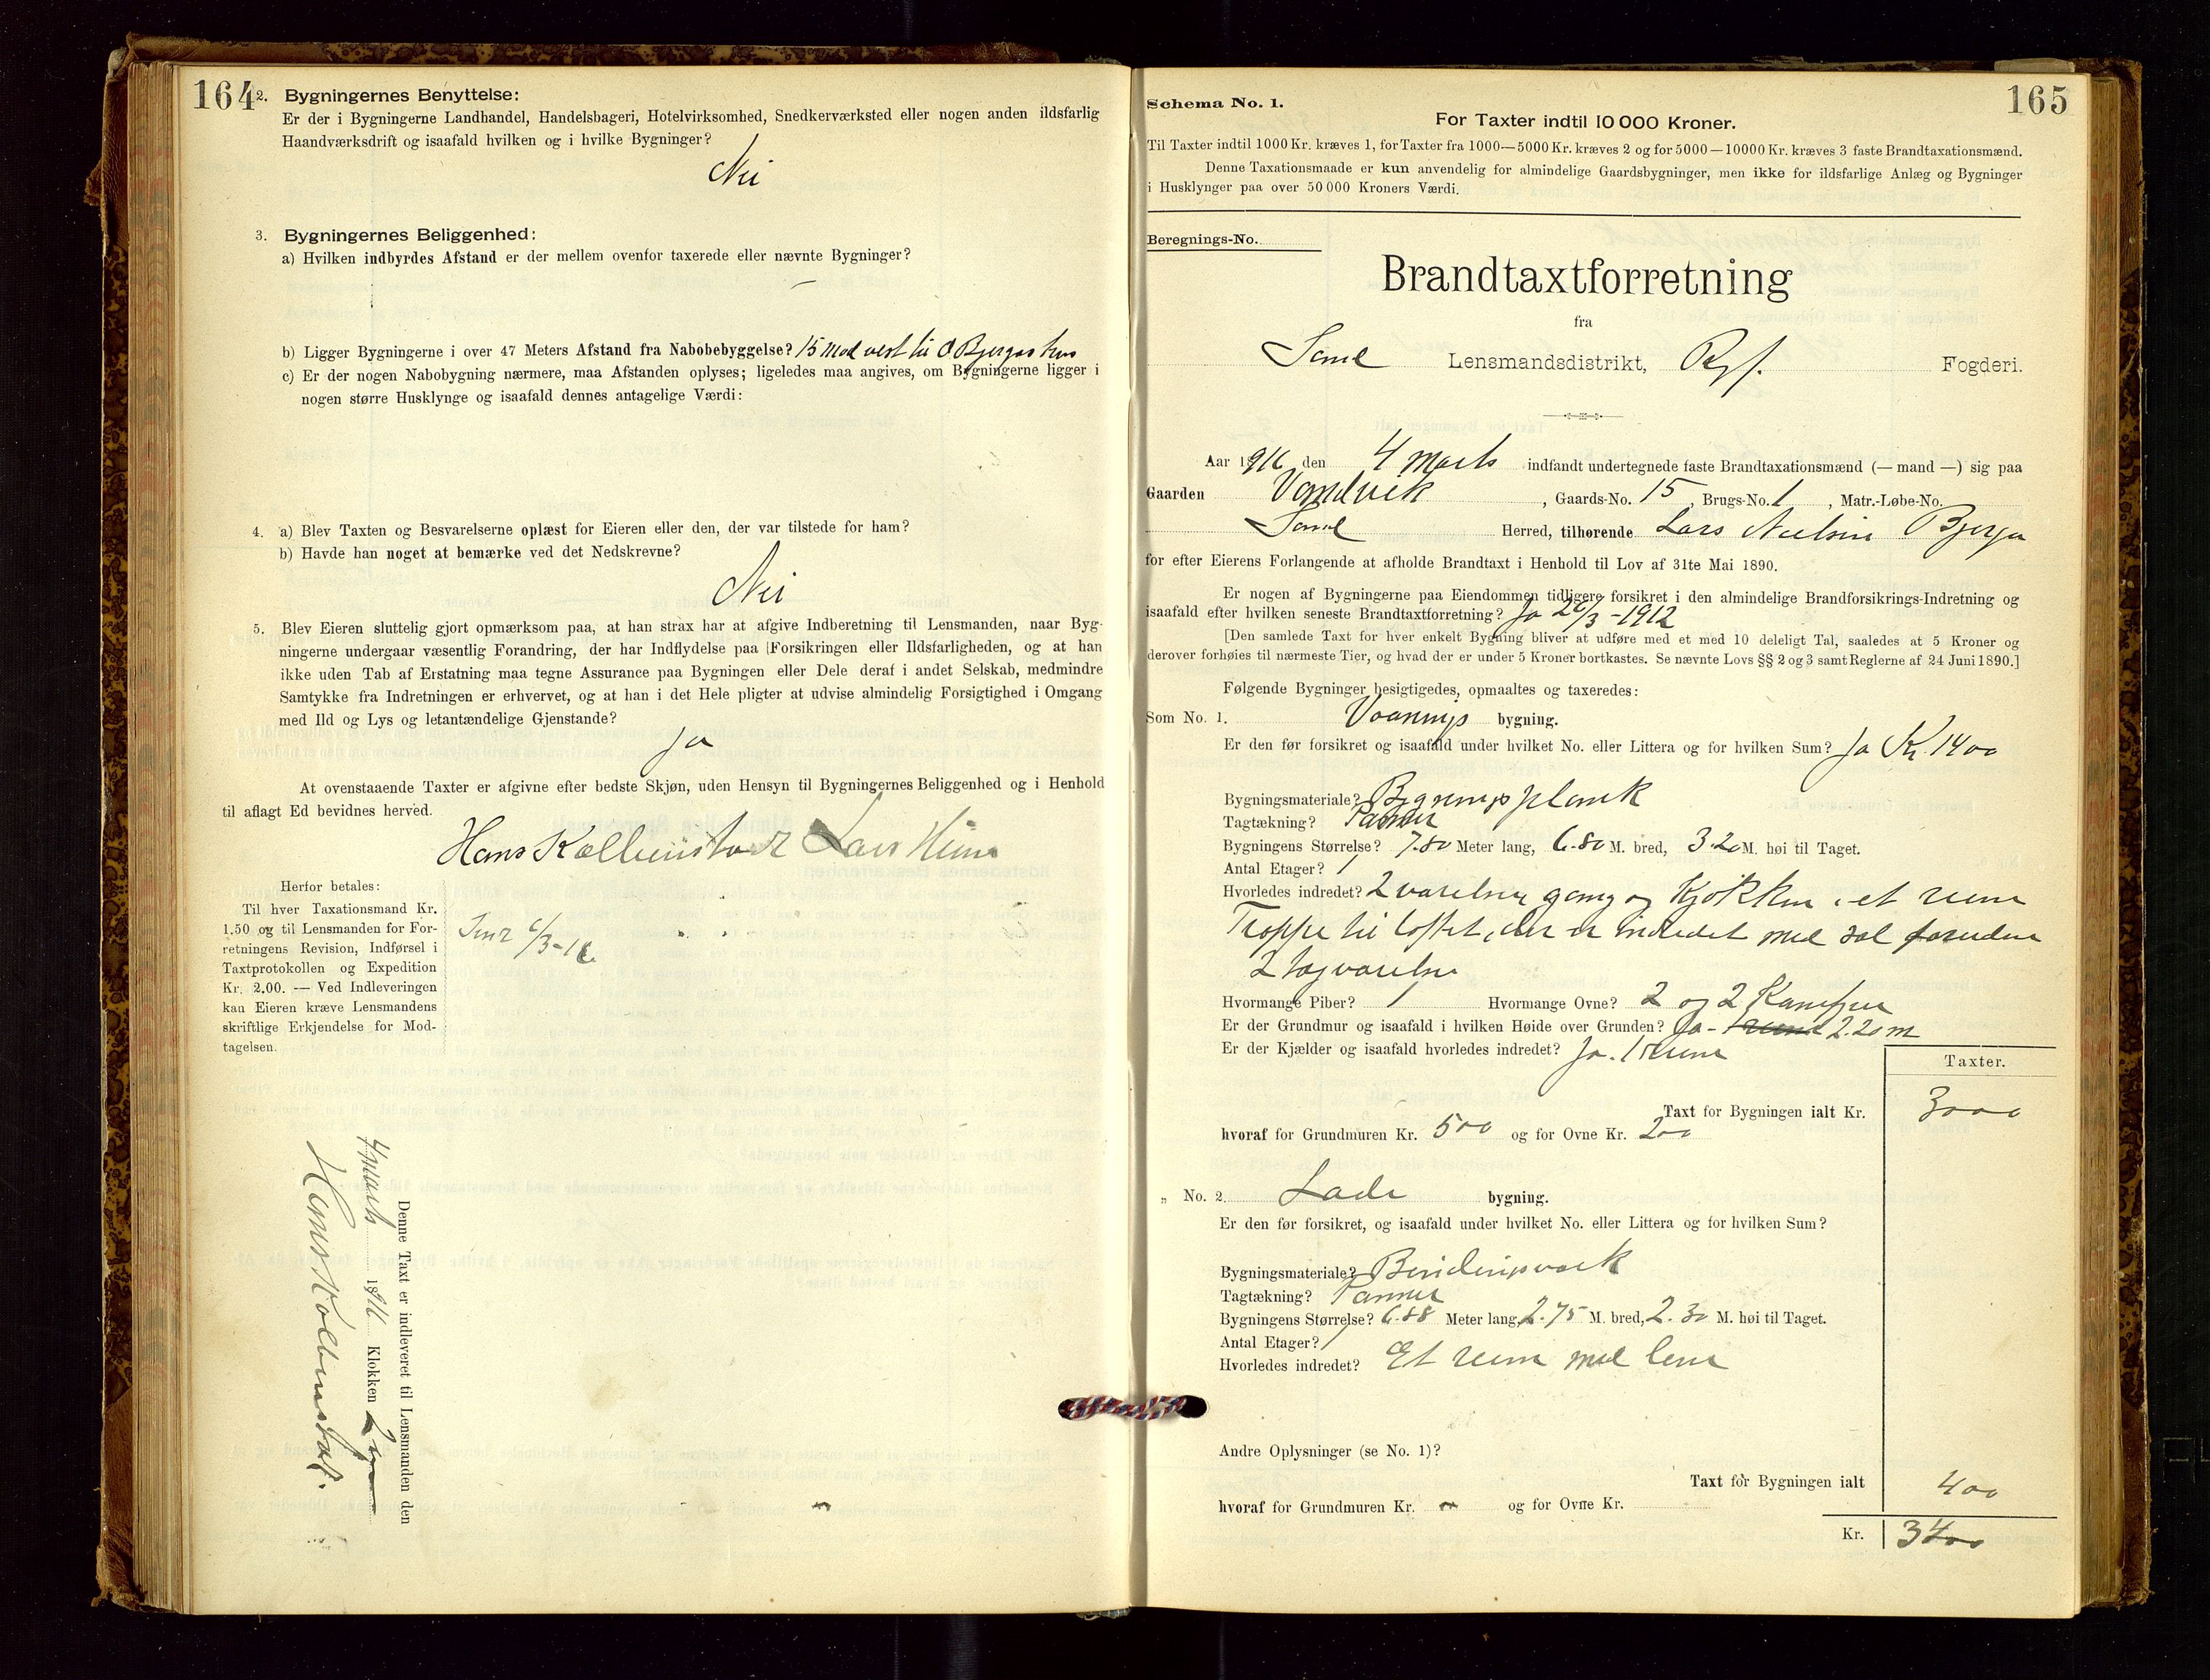 164
2. Bygningernes Benyttelse:
Er der i Bygningerne Landhandel, Handelsbageri, Hotelvirksomhed, Snedkerværksted eller nogen anden ildsfarlig
Haandværksdrift og isaafald hvilken og i hvilke Bygninger?
Nei
3. Bygningernes Beliggenhed:
a) Hvilken indbyrdes Afstand er der mellem ovenfor taxerede eller nævnte Bygninger?
—
b) Ligger Bygningerne i over 47 Meters Afstand fra Nabobebyggelse? 15 M mod vest til O Bjergas hus
c) Er der nogen Nabobygning nærmere, maa Afstanden oplyses; ligeledes maa angives, om Bygningerne ligger i
nogen større Husklynge og isaafald dennes antagelige Værdi:
4. a) Blev Taxten og Besvarelserne oplæst for Eieren eller den, der var tilstede for ham?
b) Havde han noget at bemærke ved det Nedskrevne?
Nei
5. Blev Eieren sluttelig gjort opmærksom paa, at han strax har at afgive Indberetning til Lensmanden, naar Byg-
ningerne undergaar væsentlig Forandring, der har Indflydelse paa Forsikringen eller Ildsfarligheden, og at han
ikke uden Tab af Erstatning maa tegne Assurance paa Bygningen eller Dele deraf i andet Selskab, medmindre
Samtykke fra Indretningen er erhvervet, og at han i det Hele pligter at udvise almindelig Forsigtighed i Omgang
med Ild og Lys og letantændelige Gjenstande?
Ja
At ovenstaaende Taxter er afgivne efter bedste Skjøn, uden Hensyn til Bygningernes Beliggenhed og i Henhold
til aflagt Ed bevidnes herved.
Hans Kolbenstvedt Lars Heim
Herfor betales:
Til hver Taxationsmand Kr.
1,50 og til Lensmanden for For-
retningens Revision, Indførsel i
Taxtprotokollen og Expedition
Kr. 2.00. — Ved Indleveringen
kan Eieren kræve Lensmandens
skriftlige Erkjendelse for Mod-
tagelsen.
6/3-16
Denne Taxt er indleveret til Lensmanden den
4 marts 1916 Klokken
165
Schema No. 1.
For Taxter indtil 10 000 Kroner.
Til Taxter indtil 1000 Kr. kræves 1, for Taxter fra 1000—5000 Kr. kræves 2 og for 5000—10000 Kr. kræves 3 faste Brandtaxationsmænd.
Denne Taxationsmaade er kun anvendelig for almindelige Gaardsbygninger, men ikke for ildsfarlige Anlæg og Bygninger
i Husklynger paa over 50 000 Kroners Værdi.
Beregnings-No.
Brandtaxtforretning
fra
Sand Lensmandsdistrikt, Ryf. Fogderi.
Aar 1916 den 4 Marts indfandt undertegnede faste Brandtaxationsmænd (— mand —) sig paa
Gaarden Vandvik, Gaards-No. 15, Brugs-No. 1, Matr.-Løbe-No.
Sand Herred, tilhørende Lars Nielsen Bjerga
for efter Eierens Forlangende at afholde Brandtaxt i Henhold til Lov af 31te Mai 1890.
Er nogen af Bygningerne paa Eiendommen tidligere forsikret i den almindelige Brandforsikrings-Indretning og
isaafald efter hvilken seneste Brandtaxtforretning? Ja 26/3-1912
[Den samlede Taxt for hver enkelt Bygning bliver at udføre med et med 10 deleligt Tal, saaledes at 5 Kroner og
derover forhøies til nærmeste Tier, og hvad der er under 5 Kroner bortkastes. Se nævnte Lovs §§ 2 og 3 samt Reglerne af 24 Juni 1890.]
Følgende Bygninger besigtigedes, opmaaltes og taxeredes:
Som No. 1. Vaanings bygning.
Er den før forsikret og isaafald under hvilket No. eller Littera og for hvilken Sum? Ja Kr. 1400
Bygningsmateriale? Bygningsplank
Tagtækning? Panner
Bygningens Størrelse? 7.80 Meter lang, 6.80 M. bred, 3.20 M. høi til Taget.
Antal Etager? 1
Hvorledes indredet? 2 værelser gang og Kjøkken, et rum
Trappe til loftet, der er indredet med sal foruden
2 tagværelser
Hvormange Piber? 1 Hvormange Ovne? 2 og 2 Komfyrer
Er der Grundmur og isaafald i hvilken Høide over Grunden? Ja - 2.20 m
Er der Kjælder og isaafald hvorledes indredet? Ja. 1 rum
Taxter.
Taxt for Bygningen ialt Kr. 3000
hvoraf for Grundmuren Kr. 500 og for Ovne Kr. 200
„ No. 2. Lade bygning.
Er den før forsikret, og isaafald under hvilket No. eller Littera og for hvilken Sum?
Bygningsmateriale? Bindingsværk
Tagtækning? Panner
Bygningens Størrelse? 6.88 Meter lang, 2.75 M. bred, 2.30 M. høi til Taget.
Antal Etager? 1
Hvorledes indredet? Et rum med lem
Andre Oplysninger (se No. 1)?
Taxt for Bygningen ialt 400
hvoraf for Grundmuren Kr. — og for Ovne Kr.
Kr. 3400